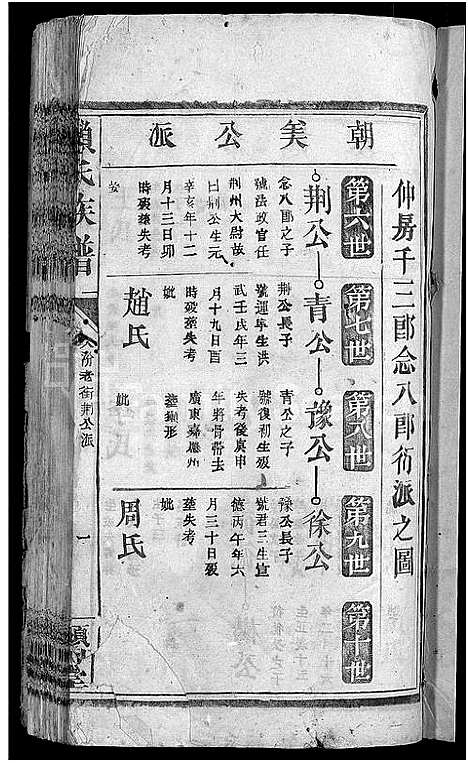 仲房千三郎念八郎衍派之圖
朝美公派
第六世
第七世
第八世
第九世
第十世
荆公
青公
豫公
徐公
念八郎之子
號法政官任
荆州大尉故
曰荆公生元
辛亥年十二
月十三日卯
時歿塟失考
荆公長子
號運亭生洪
武壬戌年三
月十九日酉
時歿塟失考
妣
趙氏
青公之子
號復初生歿
失考後庚申
年將骨帶去
廣東嘉應州
塟獅形
妣
豫公長子
號君三生宣
德丙午年六
月三十日歿
塟失考
妣
周氏
賴氏族譜
老街荆公派
一